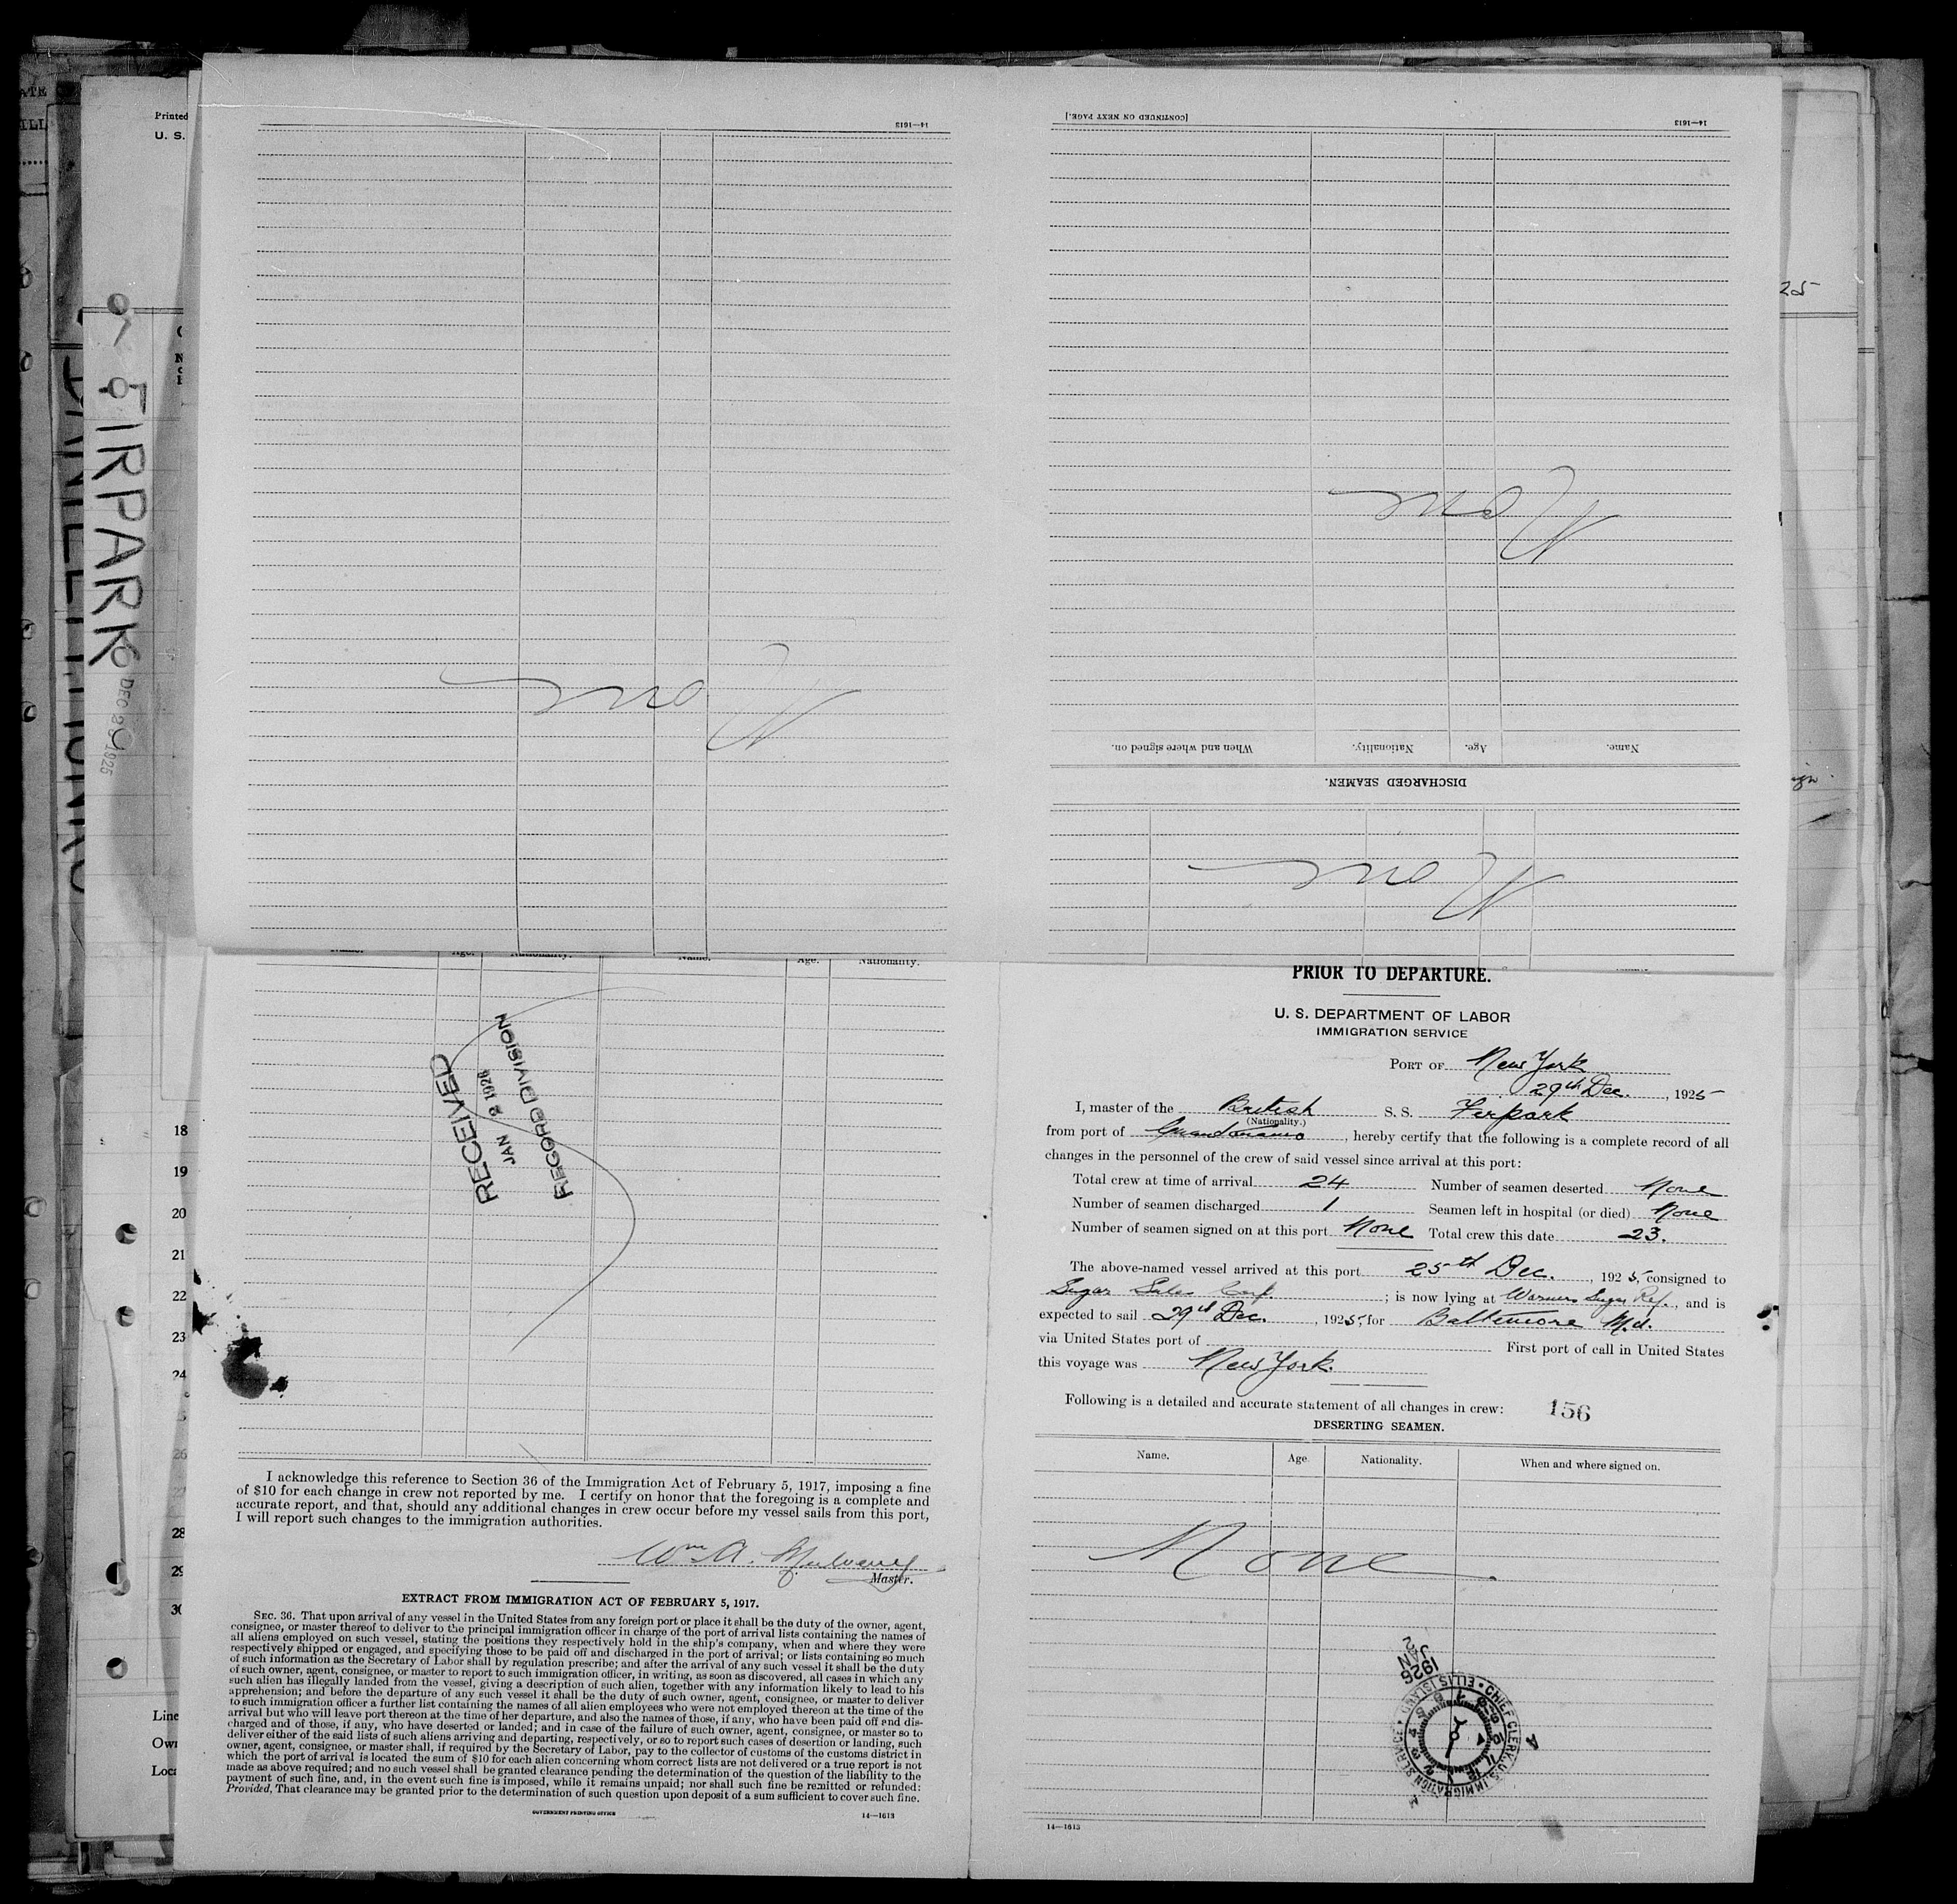 Printed
U. S.
ATE
ILL
25
FIRPARK
DEC 29 1925
14—1613
None
[CONTINUED ON NEXT PAGE.]
14—1613
None
Name.
Age.
Nationality.
When and where signed on.
DISCHARGED SEAMEN.
None
Name. Age. Nationality. Name. Age. Nationality.
RECEIVED
JAN 2 1926
RECORD DIVISION
18
19
20
21
22
23
24
26
28
29
30
Line
Own
Loca
I acknowledge this reference to Section 36 of the Immigration Act of February 5, 1917, imposing a fine
of $10 for each change in crew not reported by me. I certify on honor that the foregoing is a complete and
accurate report, and that, should any additional changes in crew occur before my vessel sails from this port,
I will report such changes to the immigration authorities.
Wm A. Mulveny
Master.
EXTRACT FROM IMMIGRATION ACT OF FEBRUARY 5, 1917.
SEC. 36. That upon arrival of any vessel in the United States from any foreign port or place it shall be the duty of the owner, agent,
consignee, or master thereof to deliver to the principal immigration officer in charge of the port of arrival lists containing the names of
all aliens employed on such vessel, stating the positions they respectively hold in the ship's company, when and where they were
respectively shipped or engaged, and specifying those to be paid off and discharged in the port of arrival; or lists containing so much
of such information as the Secretary of Labor shall by regulation prescribe; and after the arrival of any such vessel it shall be the duty
of such owner, agent, consignee, or master to report to such immigration officer, in writing, as soon as discovered, all cases in which any
such alien has illegally landed from the vessel, giving a description of such alien, together with any information likely to lead to his
apprehension; and before the departure of any such vessel it shall be the duty of such owner, agent, consignee, or master to deliver
to such immigration officer a further list containing the names of all alien employees who were not employed thereon at the time of the
arrival but who will leave port thereon at the time of her departure, and also the names of those, if any, who have been paid off and dis-
charged and of those, if any, who have deserted or landed; and in case of the failure of such owner, agent, consignee, or master so to
deliver either of the said lists of such aliens arriving and departing, respectively, or so to report such cases of desertion or landing, such
owner, agent, consignee, or master shall, if required by the Secretary of Labor, pay to the collector of customs of the customs district in
which the port of arrival is located the sum of $10 for each alien concerning whom correct lists are not delivered or a true report is not
made as above required; and no such vessel shall be granted clearance pending the determination of the question of the liability to the
payment of such fine, and, in the event such fine is imposed, while it remains unpaid; nor shall such fine be remitted or refunded:
Provided, That clearance may be granted prior to the determination of such question upon deposit of a sum sufficient to cover such fine.
GOVERNMENT PRINTING OFFICE 14—1613
PRIOR TO DEPARTURE.
U. S. DEPARTMENT OF LABOR
IMMIGRATION SERVICE
PORT OF New York
29th Dec., 1925
I, master of the British S. S. Firpark
(Nationality.)
from port of Guantanamo, hereby certify that the following is a complete record of all
changes in the personnel of the crew of said vessel since arrival at this port:
Total crew at time of arrival 24 Number of seamen deserted None
Number of seamen discharged 1 Seamen left in hospital (or died) None
Number of seamen signed on at this port None Total crew this date 23.
The above-named vessel arrived at this port 25th Dec., 1925, consigned to
Sugar Sales Corp.; is now lying at Warners Sugar Ref., and is
expected to sail 29th Dec., 1925, for Baltimore Md.
via United States port of First port of call in United States
this voyage was New York.
Following is a detailed and accurate statement of all changes in crew: 156
DESERTING SEAMEN.
Name. Age Nationality. When and where signed on.
None
1926 JAN 2
CHIEF CLERK, U.S. IMMIGRATION SERVICE • ELLIS ISLAND
14—1613